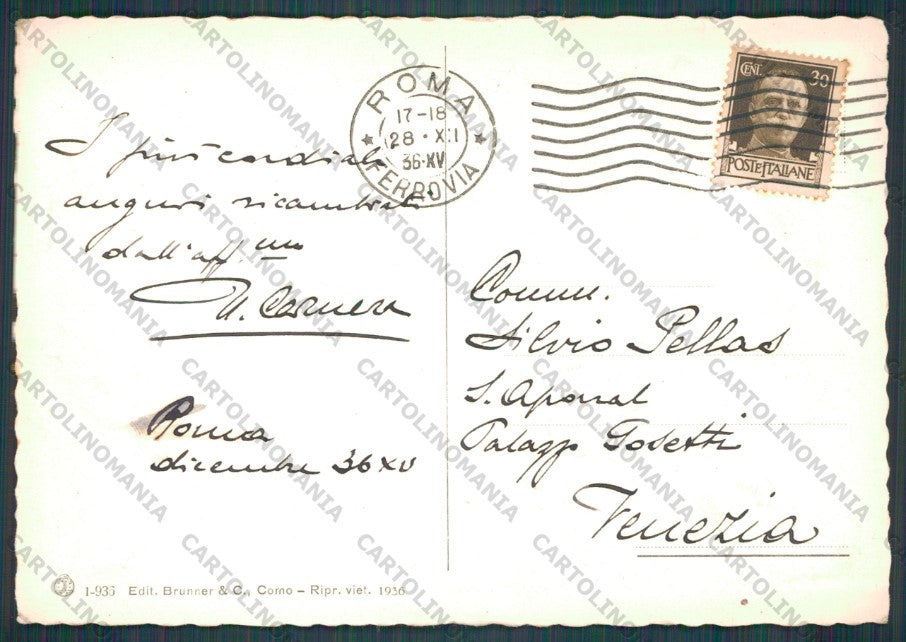 I più cordiali
auguri ricambiati
dall'aff.mo
Roma
dicembre 36 XV
ROMA
17-18
28·XII
36·XV
FERROVIA
CENT. 30
POSTE ITALIANE
Comm.
Silvio Pellas
S. Aponal
Palazzo Gosetti
Venezia
1-936 Edit. Brunner & C., Como – Ripr. viet. 1936
CARTOLINOMANIA